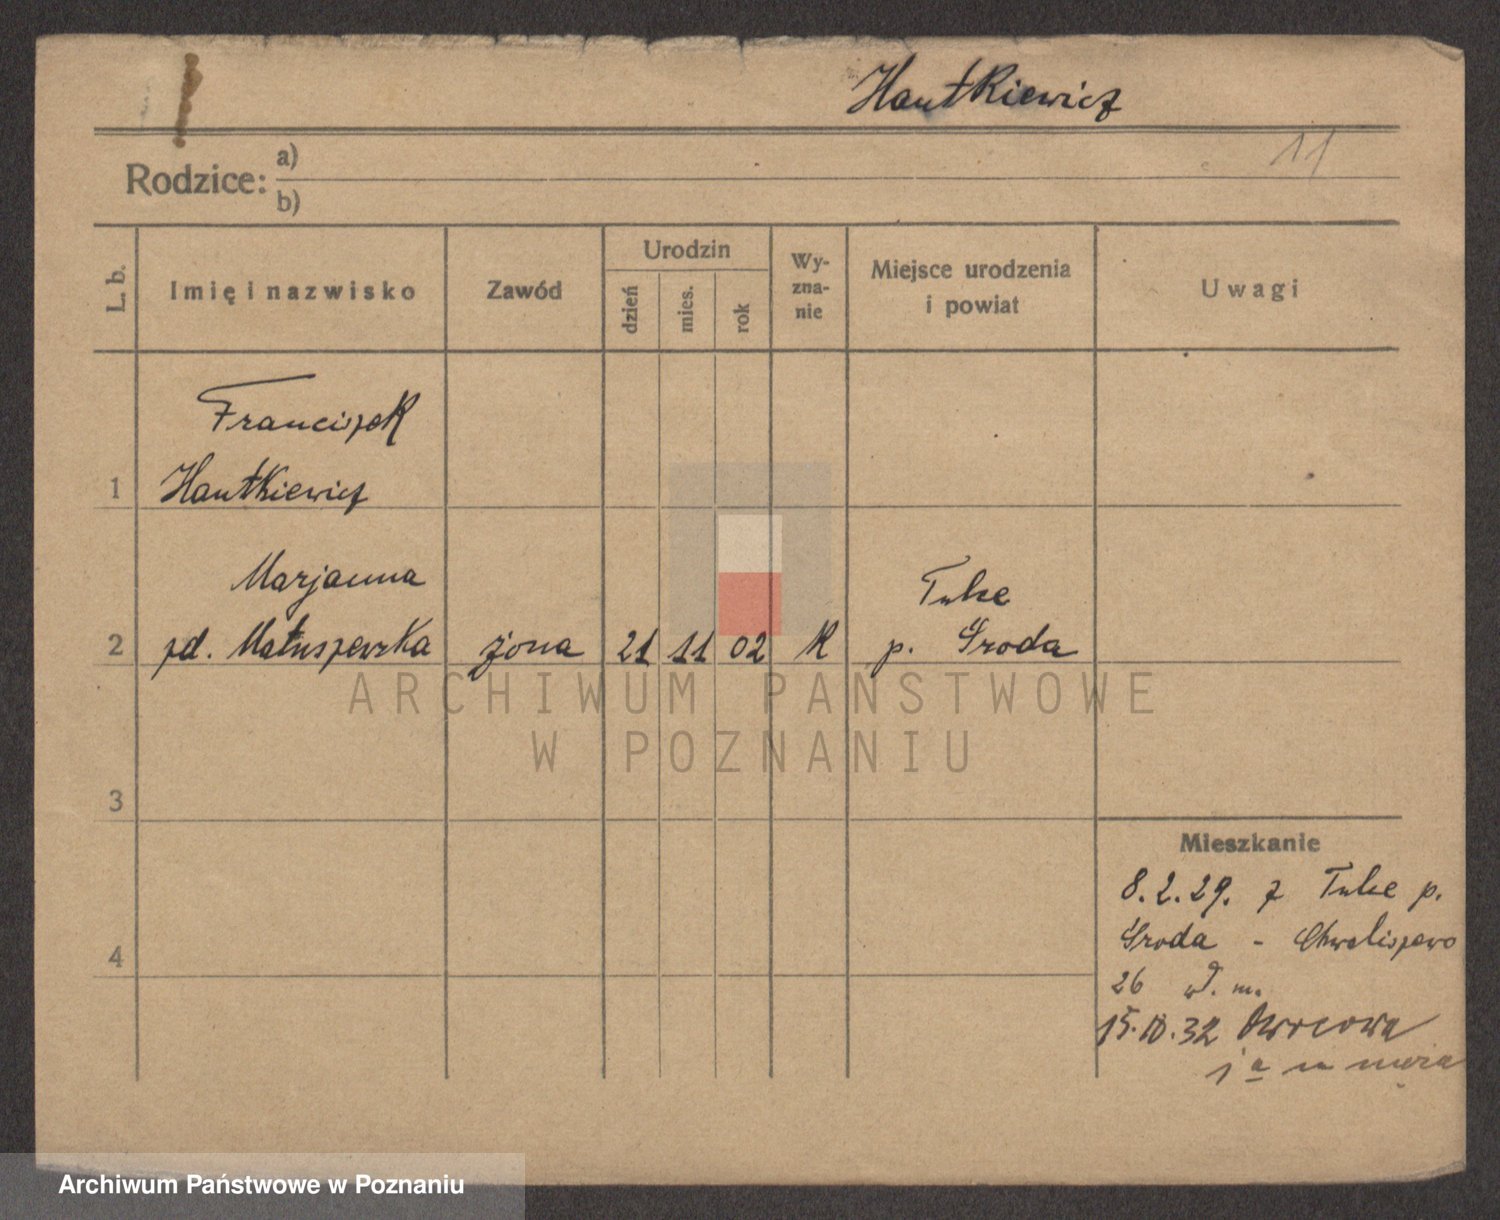 HautKiewicz
11
Rodzice: a)
b)
L. b.
Imię i nazwisko
Zawód
Urodzin
dzień
mies.
rok
Wy-
zna-
nie
Miejsce urodzenia
i powiat
Uwagi
Franciszek
1 HautKiewicz
Marjanna
Tulce
2 zd. Matuszewska żona 21 11 02 K p. Środa
ARCHIWUM PAŃSTWOWE
W POZNANIU
3
Mieszkanie
8.2.29. z Tulce p.
Środa - Chwaliszewo
4
26 m.
15. 32 Owocowa
1a u męża
Archiwum Państwowe w Poznaniu